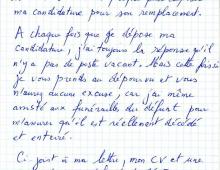 ma candidature pour son remplacement.
A chaque fois que je dépose ma
candidature, j'ai toujours la réponse qu'il
n'y a pas de poste vacant. Mais cette fois ci
je vous prends au dépourvu et vous
n'aurez aucune excuse, car j'ai même
assisté aux funérailles du défunt pour
m'assurer qu'il est réellement décédé
et enterré.
Ci joint à ma lettre, mon CV et une